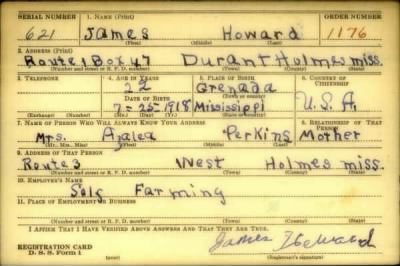 SERIAL NUMBER 1. NAME (Print) ORDER NUMBER
621 James Howard 1176
(First) (Middle) (Last)
2. ADDRESS (Print)
Route 1 Box 47 Durant Holmes miss.
(Number and street or R. F. D. number) (Town) (County) (State)
3. TELEPHONE 4. AGE IN YEARS 5. PLACE OF BIRTH 6. COUNTRY OF CITIZENSHIP
22 Grenada
DATE OF BIRTH (Town or county)
7-25-1918 Mississippi U.S.A.
(Exchange) (Number) (Mo.) (Day) (Yr.) (State or country)
7. NAME OF PERSON WHO WILL ALWAYS KNOW YOUR ADDRESS 8. RELATIONSHIP OF THAT PERSON
Mrs. Azalea Perkins Mother
(Mr., Mrs., Miss) (First) (Middle) (Last)
9. ADDRESS OF THAT PERSON
Route 3 West Holmes miss.
(Number and street or R. F. D. number) (Town) (County) (State)
10. EMPLOYER'S NAME
Farming
11. PLACE OF EMPLOYMENT OR BUSINESS
(Number and street or R. F. D. number) (Town) (County) (State)
I AFFIRM THAT I HAVE VERIFIED ABOVE ANSWERS AND THAT THEY ARE TRUE.
REGISTRATION CARD
D. S. S. Form 1 James Howard
(Registrant's signature)